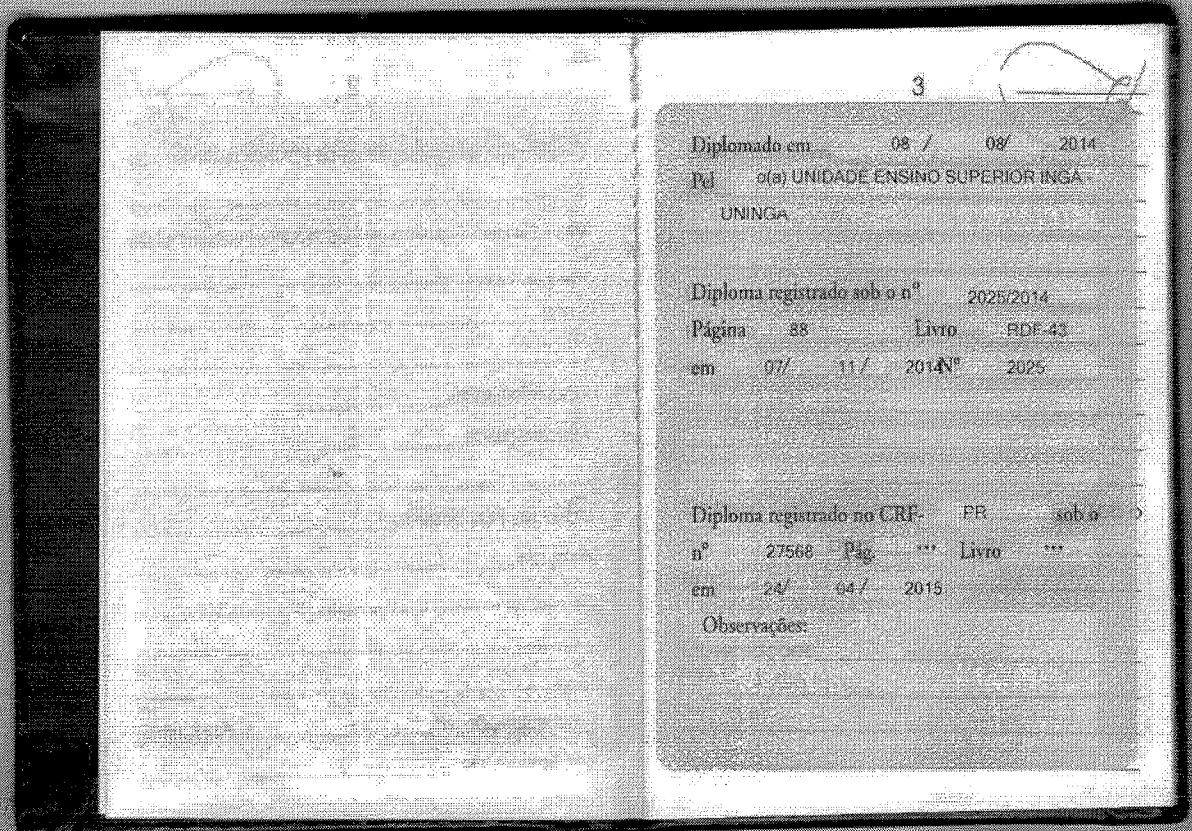 3
Diplomado em 08 / 08/ 2014
Pel o(a) UNIDADE ENSINO SUPERIOR INGA -
UNINGA
Diploma registrado sob o nº 2025/2014
Página 88 Livro RDF-43
em 07/ 11/ 2014 Nº 2025
Diploma registrado no CRF- PR sob o
nº 27568 Pág. *** Livro ***
em 24/ 04/ 2015
Observações: